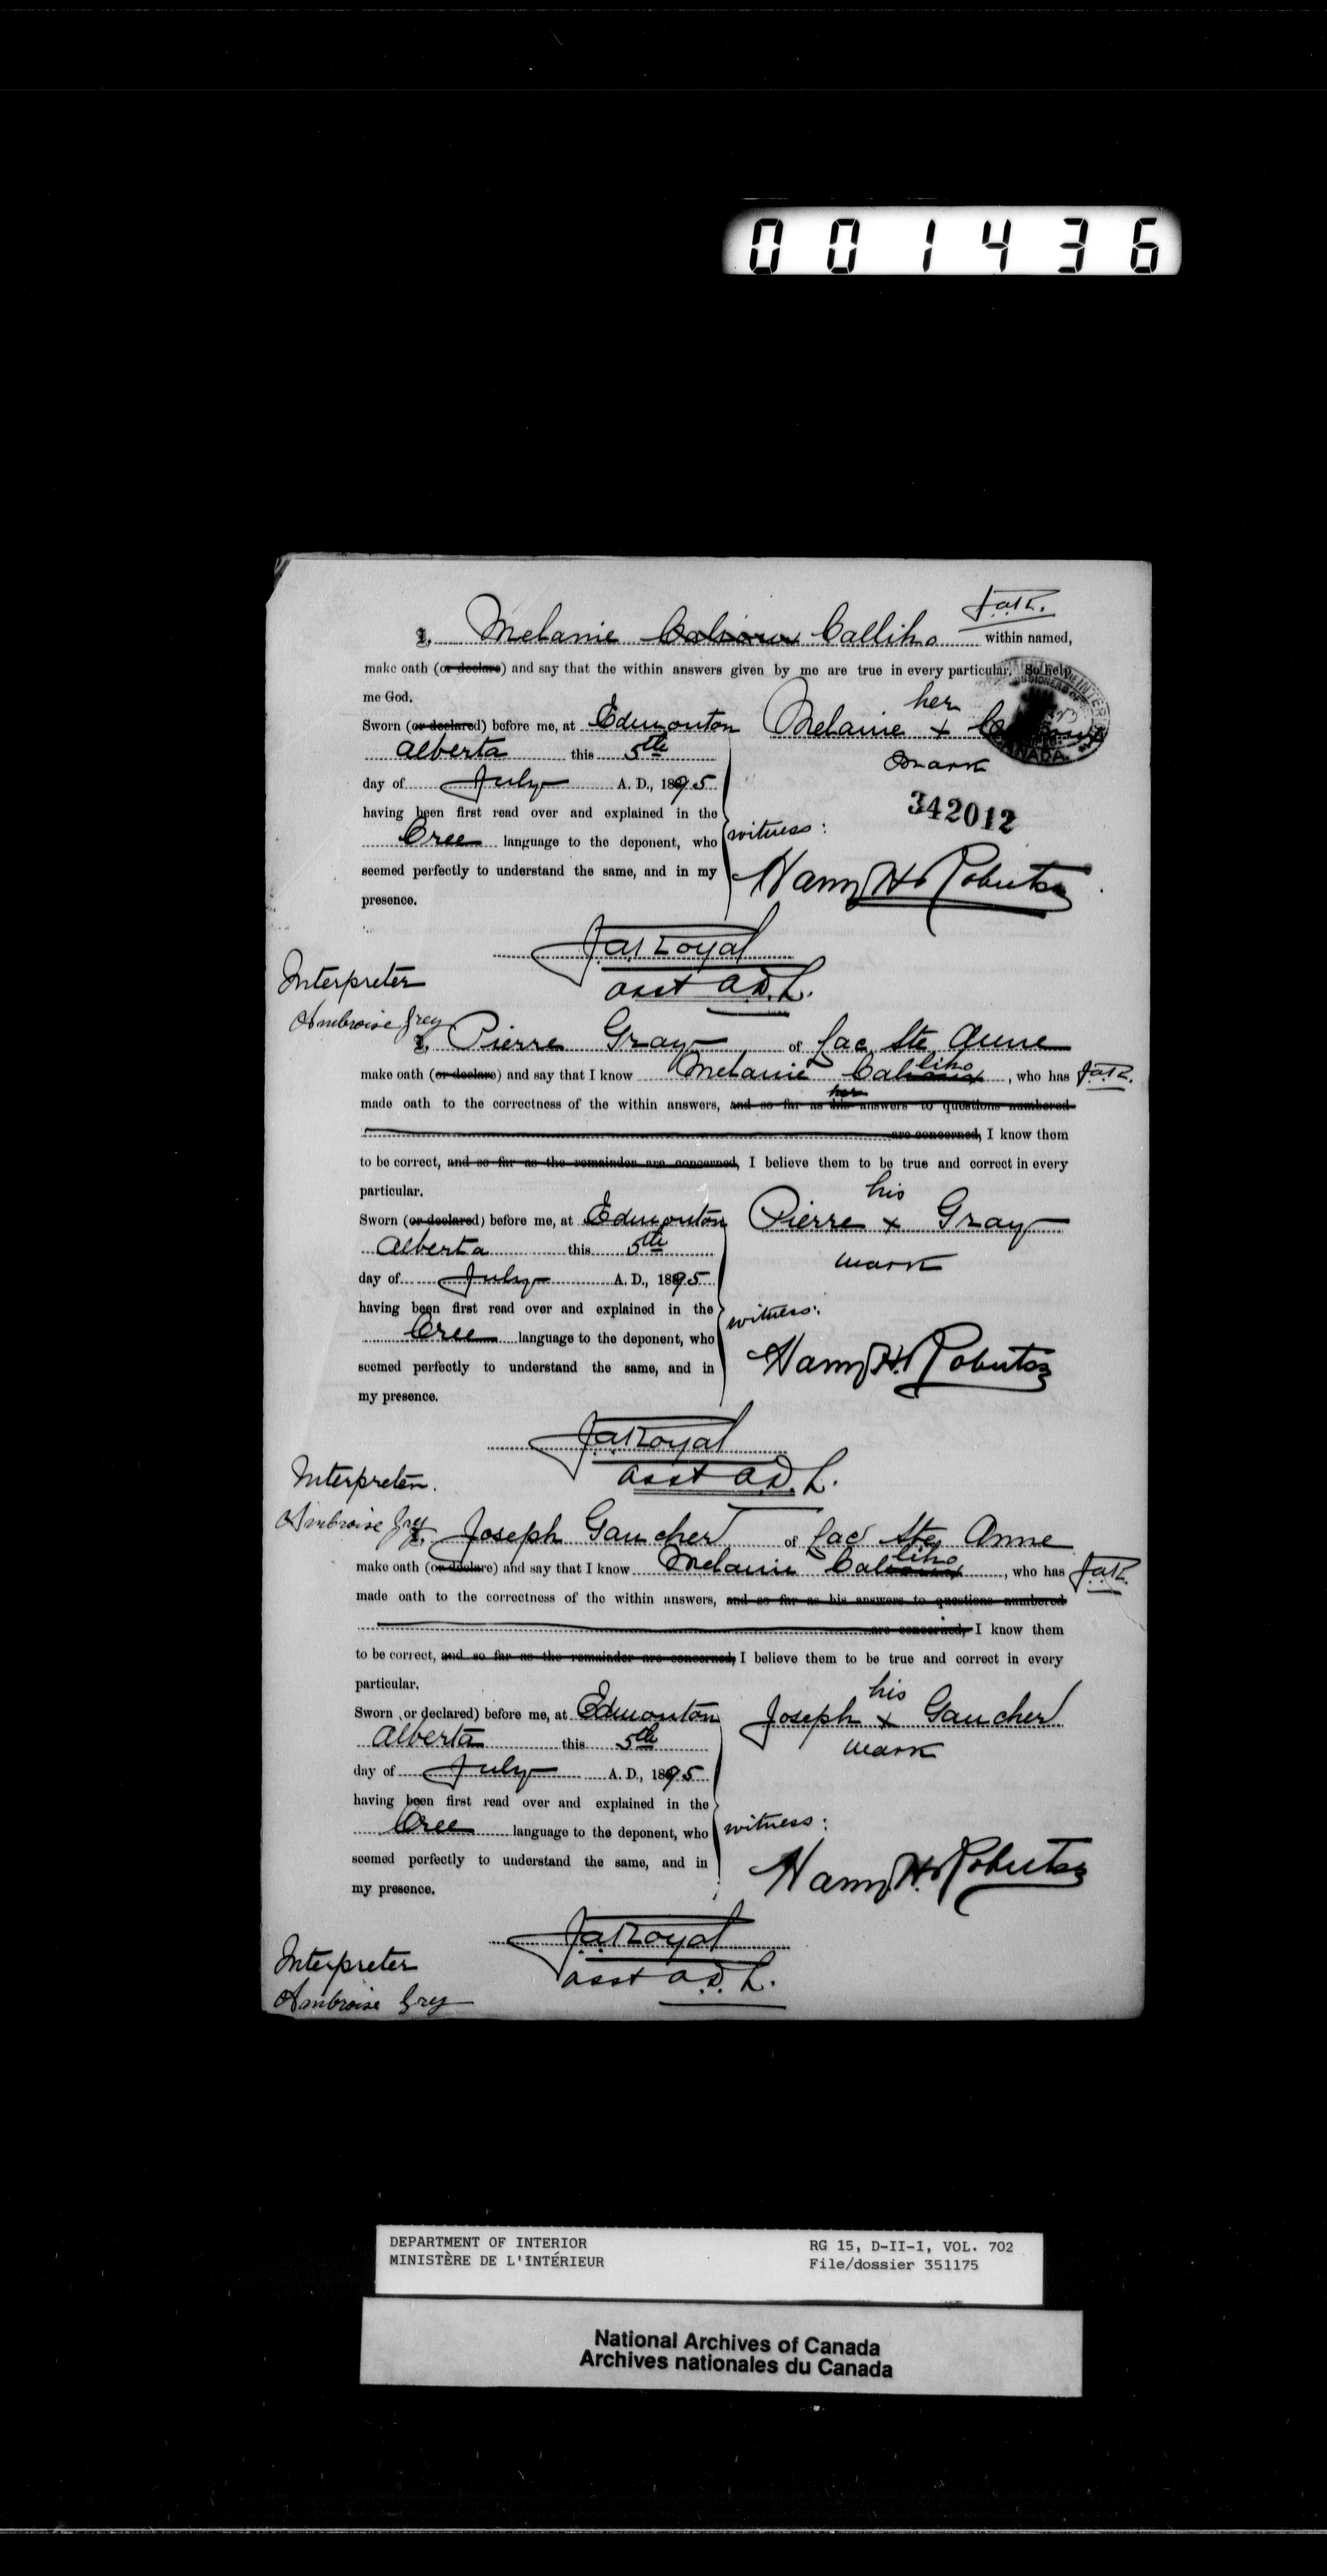 001436
J.A.R.
I, Melanie Calliho within named,
make oath (or declare) and say that the within answers given by me are true in every particular. So help
me God.
Sworn (or declared) before me, at Edmonton
Alberta this 5th
day of July A. D., 1895
having been first read over and explained in the
Cree language to the deponent, who
seemed perfectly to understand the same, and in my
presence.
her
Melanie x
mark
CANADA.
342012
witness:
Harry H. Robertson
J.A. Royal
asst A.D.L.
Interpreter
Ambroise Grey
I, Pierre Gray of Lac Ste Anne
make oath (or declare) and say that I know Melanie Calliho, who has J.A.R.
made oath to the correctness of the within answers, and so far as his her answers to questions numbered
are concerned, I know them
to be correct, and so far as the remainder are concerned, I believe them to be true and correct in every
particular.
Sworn (or declared) before me, at Edmonton
Alberta this 5th
day of July A. D., 1895
having been first read over and explained in the
Cree language to the deponent, who
seemed perfectly to understand the same, and in
my presence.
his
Pierre x Gray
mark
witness:
Harry H. Robertson
J.A. Royal
asst A.D.L.
Interpreter.
Ambroise Grey
I, Joseph Gaucher of Lac Ste Anne
make oath (or declare) and say that I know Melanie Calliho, who has J.A.R.
made oath to the correctness of the within answers, and so far as his answers to questions numbered
are concerned, I know them
to be correct, and so far as the remainder are concerned, I believe them to be true and correct in every
particular.
Sworn (or declared) before me, at Edmonton
Alberta this 5th
day of July A. D., 1895
having been first read over and explained in the
Cree language to the deponent, who
seemed perfectly to understand the same, and in
my presence.
his
Joseph x Gaucher
mark
witness:
Harry H. Robertson
J.A. Royal
asst A.D.L.
Interpreter
Ambroise Grey
DEPARTMENT OF INTERIOR RG 15, D-II-1, VOL. 702
MINISTÈRE DE L'INTÉRIEUR File/dossier 351175
National Archives of Canada
Archives nationales du Canada